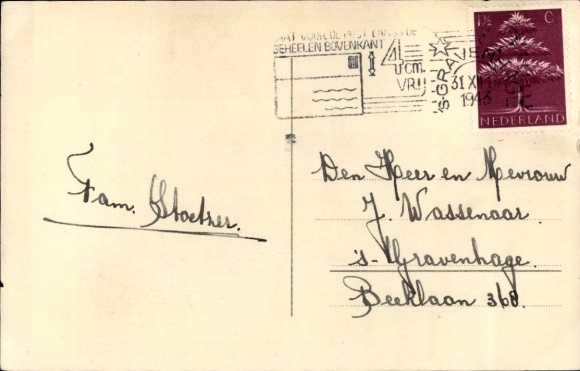 LAAT VOOR DE POST LANGS DE
GEHEELEN BOVENKANT 4
cM.
VRIJ
'S-GRAVENHAGE
31.XII
1943
1½ C
NEDERLAND
Fam. Stoetzer.
Den Heer en Mevrouw
J. Wassenaar
's-Gravenhage.
Beeklaan 368.